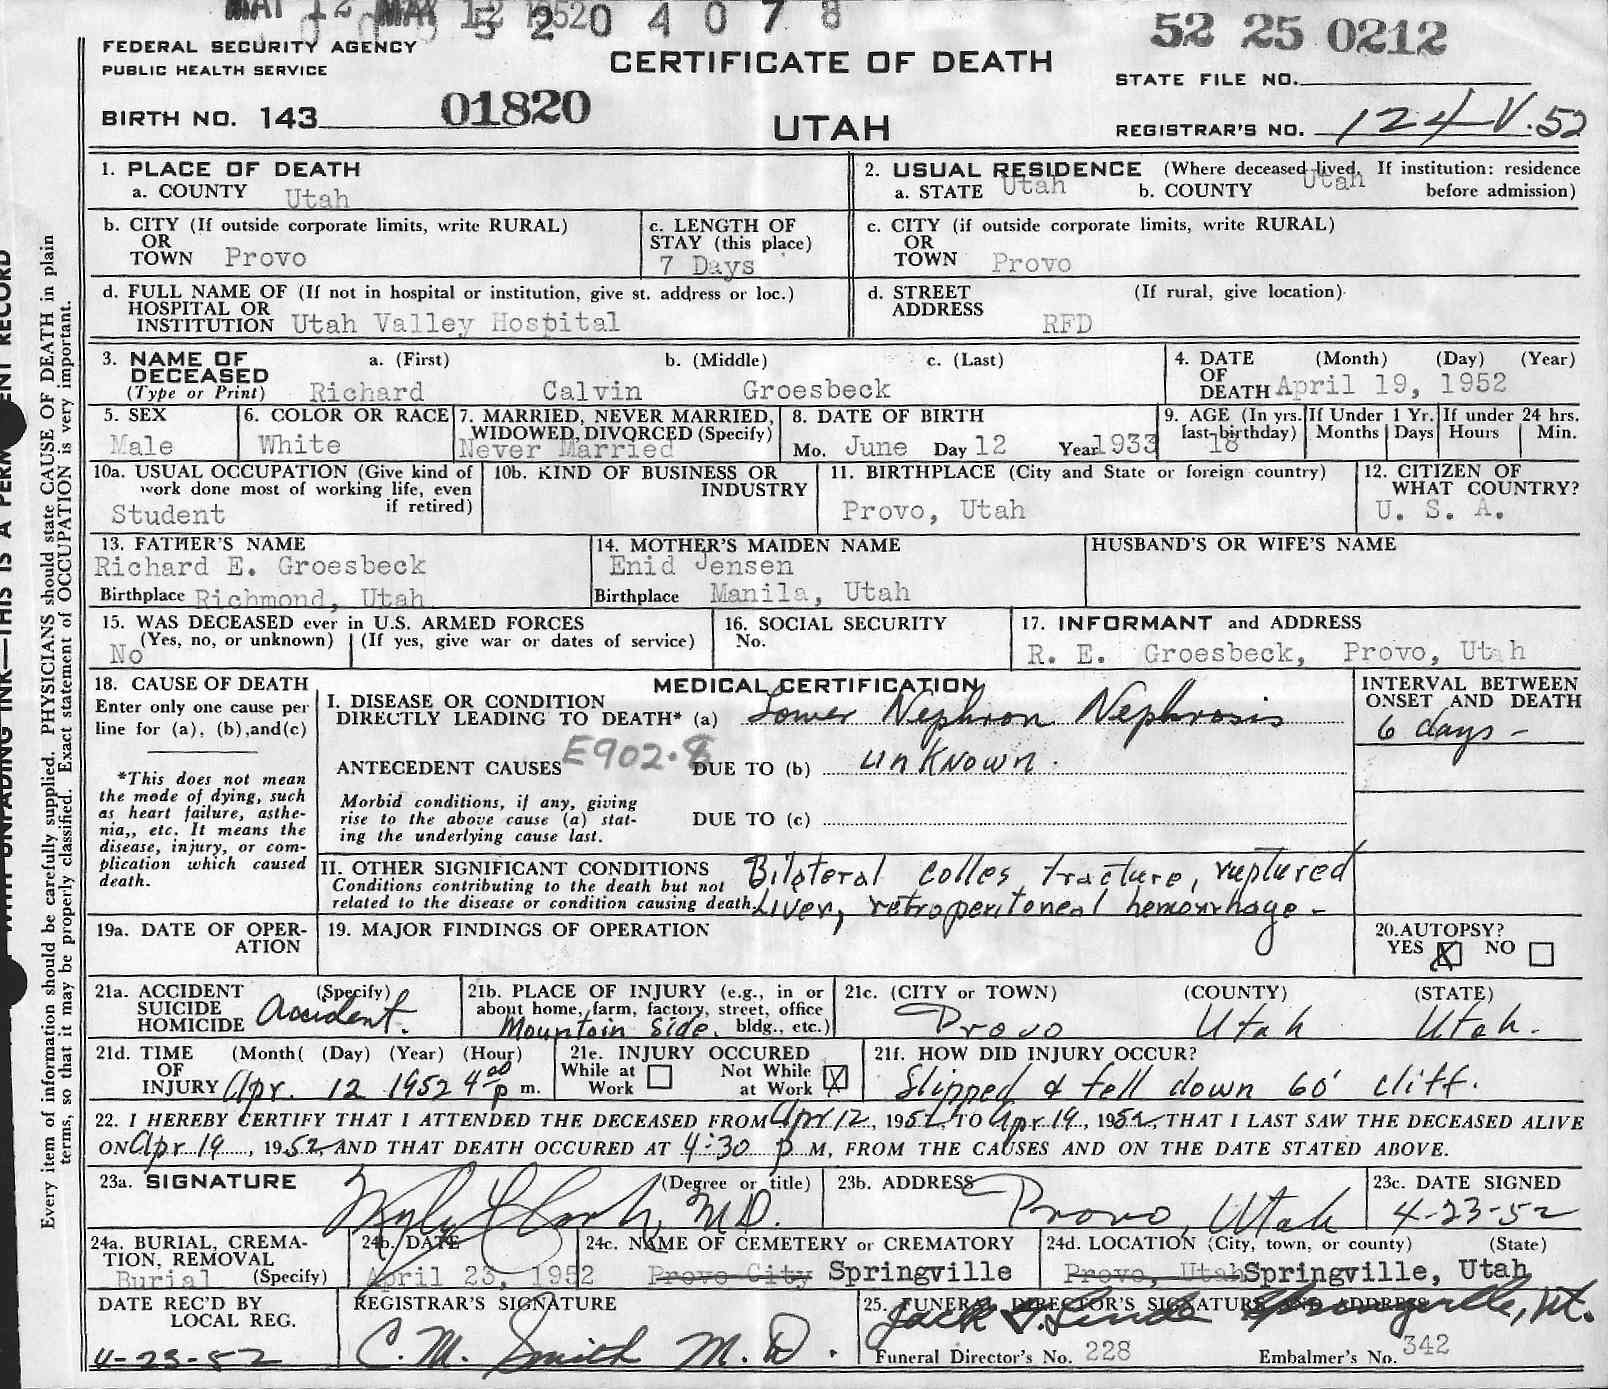 MAY 12 MAY 12 1952
5 2 0 4 0 7 8
52 25 0212
FEDERAL SECURITY AGENCY
PUBLIC HEALTH SERVICE
CERTIFICATE OF DEATH
STATE FILE NO.
BIRTH NO. 143 01820
UTAH
REGISTRAR'S NO. 124 V.52
1. PLACE OF DEATH
a. COUNTY Utah
2. USUAL RESIDENCE (Where deceased lived. If institution: residence before admission)
a. STATE Utah b. COUNTY Utah
b. CITY (If outside corporate limits, write RURAL)
OR
TOWN Provo
c. LENGTH OF
STAY (this place)
7 Days
c. CITY (if outside corporate limits, write RURAL)
OR
TOWN Provo
d. FULL NAME OF (If not in hospital or institution, give st. address or loc.)
HOSPITAL OR
INSTITUTION Utah Valley Hospital
d. STREET (If rural, give location)
ADDRESS RFD
3. NAME OF DECEASED a. (First) b. (Middle) c. (Last)
(Type or Print) Richard Calvin Groesbeck
4. DATE (Month) (Day) (Year)
OF
DEATH April 19, 1952
5. SEX
Male
6. COLOR OR RACE
White
7. MARRIED, NEVER MARRIED,
WIDOWED, DIVORCED (Specify)
Never Married
8. DATE OF BIRTH
Mo. June Day 12 Year 1933
9. AGE (In yrs. last birthday)
18
If Under 1 Yr.
Months Days
If under 24 hrs.
Hours Min.
10a. USUAL OCCUPATION (Give kind of
work done most of working life, even
if retired)
Student
10b. KIND OF BUSINESS OR
INDUSTRY
11. BIRTHPLACE (City and State or foreign country)
Provo, Utah
12. CITIZEN OF
WHAT COUNTRY?
U. S. A.
13. FATHER'S NAME
Richard E. Groesbeck
Birthplace Richmond, Utah
14. MOTHER'S MAIDEN NAME
Enid Jensen
Birthplace Manila, Utah
HUSBAND'S OR WIFE'S NAME
15. WAS DECEASED ever in U.S. ARMED FORCES
(Yes, no, or unknown) (If yes, give war or dates of service)
No
16. SOCIAL SECURITY
No.
17. INFORMANT and ADDRESS
R. E. Groesbeck, Provo, Utah
18. CAUSE OF DEATH
Enter only one cause per
line for (a), (b), and (c)
*This does not mean
the mode of dying, such
as heart failure, asthe-
nia,, etc. It means the
disease, injury, or com-
plication which caused
death.
MEDICAL CERTIFICATION
I. DISEASE OR CONDITION
DIRECTLY LEADING TO DEATH* (a) Lower Nephron Nephrosis
INTERVAL BETWEEN
ONSET AND DEATH
6 days -
E902.8
ANTECEDENT CAUSES DUE TO (b) unknown.
Morbid conditions, if any, giving
rise to the above cause (a) stat-
ing the underlying cause last.
DUE TO (c)
II. OTHER SIGNIFICANT CONDITIONS
Conditions contributing to the death but not
related to the disease or condition causing death.
Bilateral colles fracture, ruptured
Liver, retroperitoneal hemorrhage -
19a. DATE OF OPER-
ATION
19. MAJOR FINDINGS OF OPERATION
20. AUTOPSY?
YES X NO
21a. ACCIDENT (Specify)
SUICIDE
HOMICIDE Accident.
21b. PLACE OF INJURY (e.g., in or
about home, farm, factory, street, office
bldg., etc.)
Mountain side.
21c. (CITY or TOWN) (COUNTY) (STATE)
Provo Utah Utah.
21d. TIME (Month( (Day) (Year) (Hour)
OF
INJURY Apr. 12 1952 4 00 p m.
21e. INJURY OCCURED
While at Work Not While at Work X
21f. HOW DID INJURY OCCUR?
Slipped & fell down 60' cliff.
22. I HEREBY CERTIFY THAT I ATTENDED THE DECEASED FROM Apr 12, 1952, TO Apr 19, 1952, THAT I LAST SAW THE DECEASED ALIVE
ON Apr 19, 1952, AND THAT DEATH OCCURED AT 4:30 p M, FROM THE CAUSES AND ON THE DATE STATED ABOVE.
23a. SIGNATURE (Degree or title)
M.D.
23b. ADDRESS
Provo, Utah
23c. DATE SIGNED
4-23-52
24a. BURIAL, CREMA-
TION, REMOVAL
(Specify)
Burial
24b. DATE
April 23, 1952
24c. NAME OF CEMETERY or CREMATORY
Provo City Springville
24d. LOCATION (City, town, or county) (State)
Provo, Utah Springville, Utah
DATE REC'D BY
LOCAL REG.
4-23-52
REGISTRAR'S SIGNATURE
C. M. Smith M.D.
25. FUNERAL DIRECTOR'S SIGNATURE AND ADDRESS
Jack Springville, Ut.
Funeral Director's No. 228 Embalmer's No. 342
Every item of information should be carefully supplied. PHYSICIANS should state CAUSE OF DEATH in plain
terms, so that it may be properly classified. Exact statement of OCCUPATION is very important.
WITH UNFADING INK—THIS IS A PERM ENT RECORD